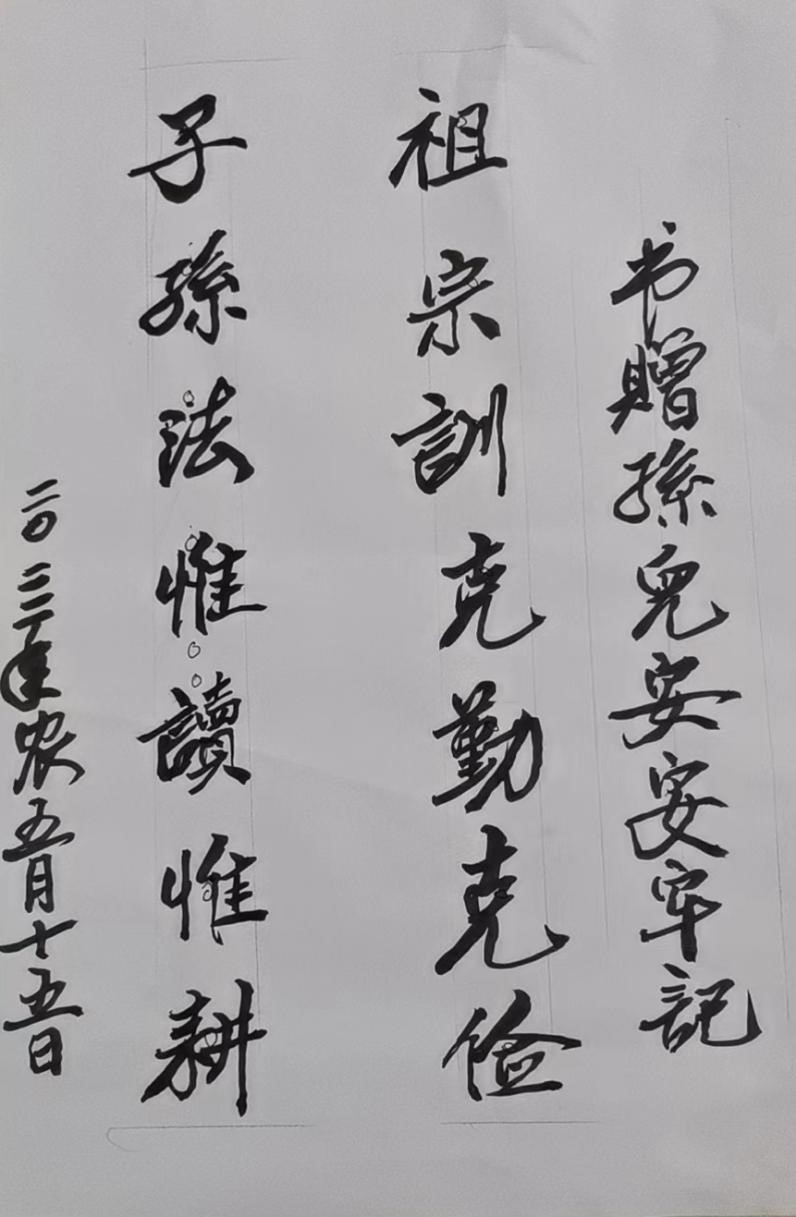 书赠孫兒安安牢記
祖宗訓克勤克俭
子孫法惟讀惟耕
二〇二二年农五月十五日